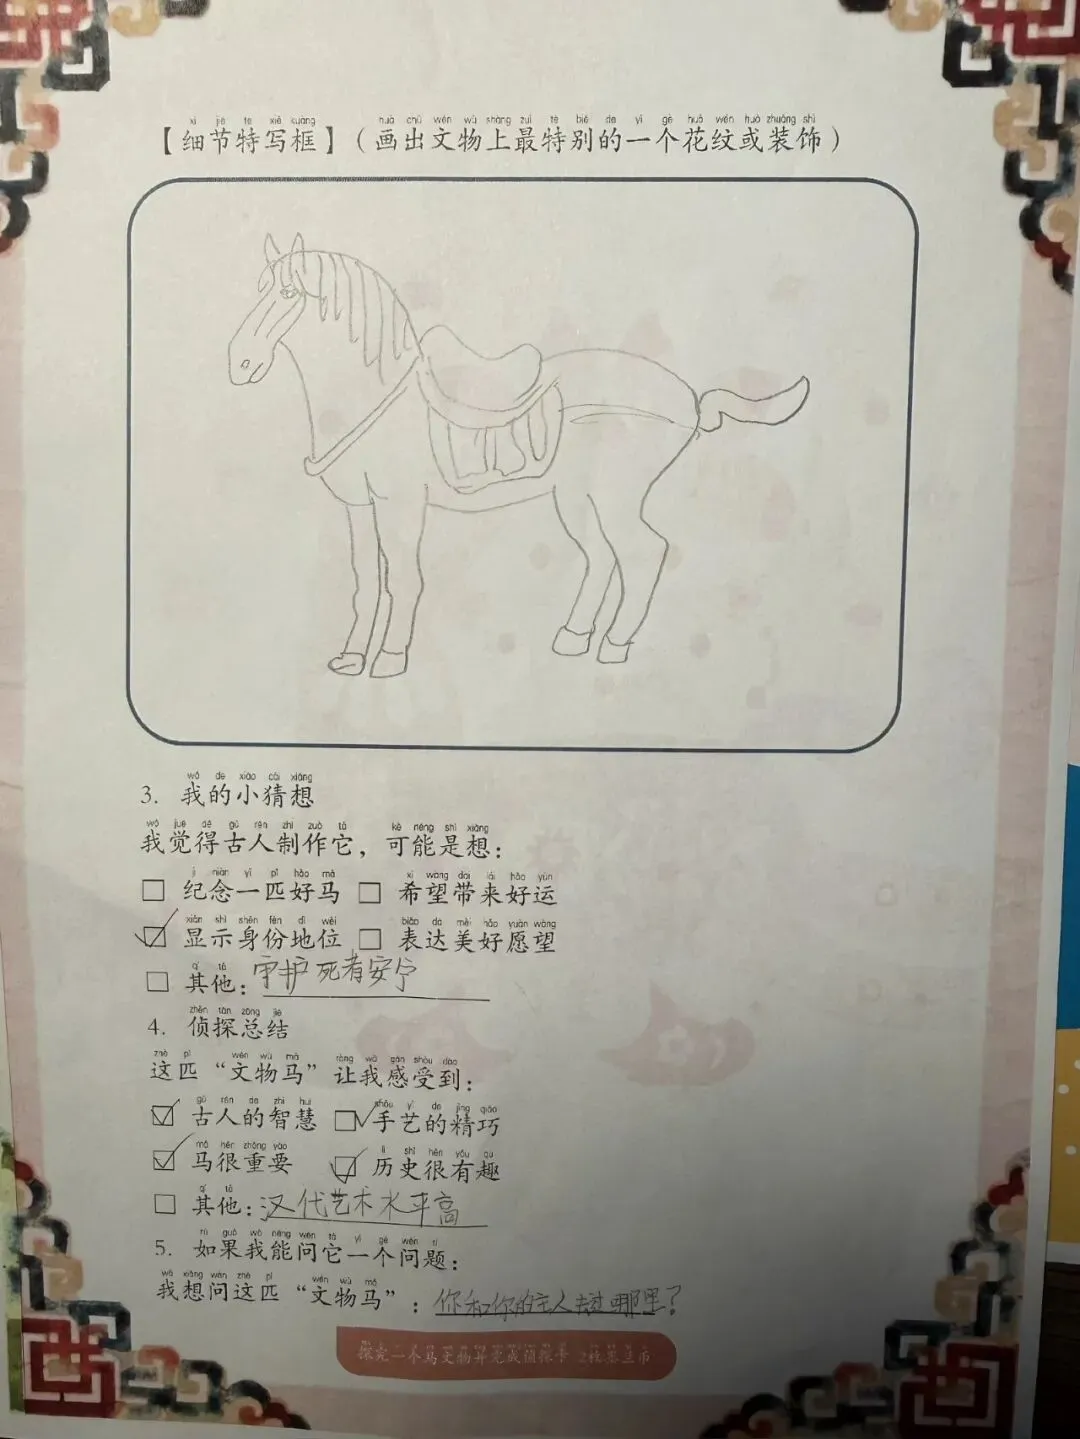 xì jié tè xiě kuàng huà chū wén wù shàng zuì tè bié de yī gè huā wén huò zhuāng shì
【细节特写框】（画出文物上最特别的一个花纹或装饰）
wǒ de xiǎo cāi xiǎng
3. 我的小猜想
wǒ jué dé gǔ rén zhì zuò tā kě néng shì xiǎng
我觉得古人制作它，可能是想：
jì niàn yī pǐ hǎo mǎ xī wàng dài lái hǎo yùn
□ 纪念一匹好马 □ 希望带来好运
xiǎn shì shēn fèn dì wèi biǎo dá měi hǎo yuàn wàng
☑ 显示身份地位 □ 表达美好愿望
qí tā
□ 其他：守护死者安宁
zhēn tàn zǒng jié
4. 侦探总结
zhè pǐ wén wù mǎ ràng wǒ gǎn shòu dào
这匹“文物马”让我感受到：
gǔ rén de zhì huì shǒu yì de jīng qiǎo
☑ 古人的智慧 ☑ 手艺的精巧
mǎ hěn zhòng yào lì shǐ hěn yǒu qù
☑ 马很重要 ☑ 历史很有趣
qí tā
□ 其他：汉代艺术水平高
rú guǒ wǒ néng wèn tā yī gè wèn tí
5. 如果我能问它一个问题：
wǒ xiǎng wèn zhè pǐ wén wù mǎ
我想问这匹“文物马”：你和你的主人去过哪里？